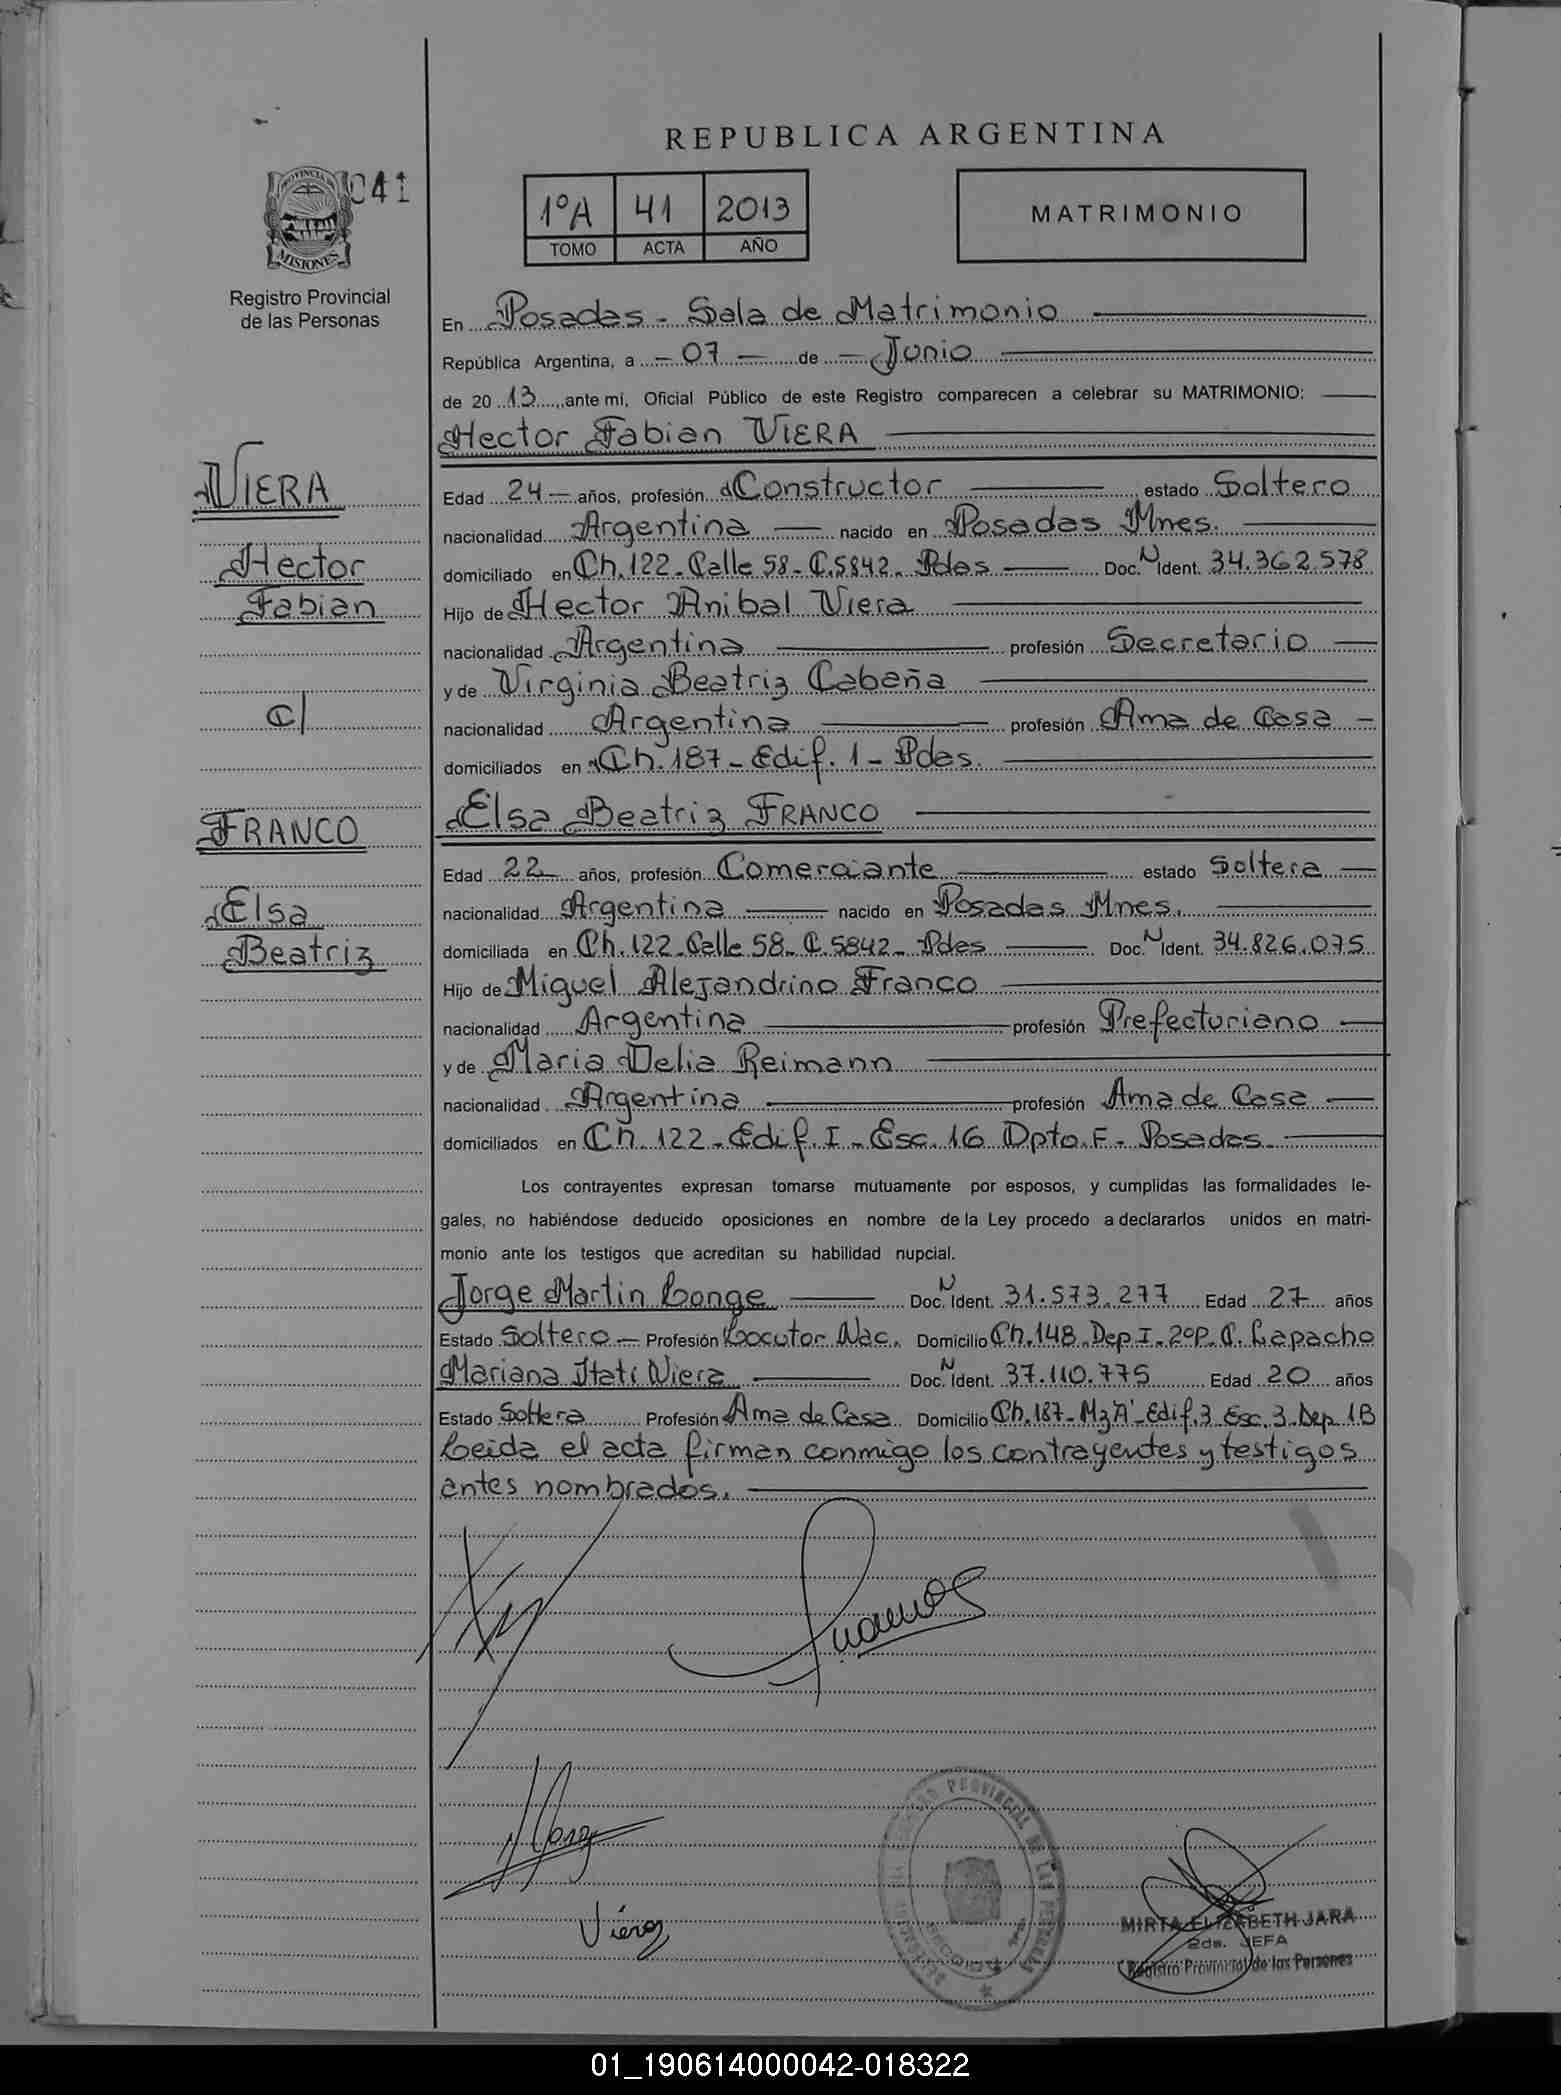 REPUBLICA ARGENTINA
PROVINCIA DE
MISIONES
041
Registro Provincial
de las Personas
1ºA 41 2013
TOMO ACTA AÑO
MATRIMONIO
En Posadas - Sala de Matrimonio
República Argentina, a - 07 - de - Junio
de 2013, ante mi, Oficial Público de este Registro comparecen a celebrar su MATRIMONIO:
Hector Fabian VIERA
VIERA
Hector
Fabian
c/
FRANCO
Elsa
Beatriz
Edad 24 - años, profesión Constructor estado Soltero
nacionalidad Argentina nacido en Posadas Mnes.
domiciliado en Ch. 122 - Calle 58 - C. 5842 - Pdas Doc. N Ident. 34.362.578
Hijo de Hector Anibal Viera
nacionalidad Argentina profesión Secretario
y de Virginia Beatriz Cabaña
nacionalidad Argentina profesión Ama de Casa -
domiciliados en Ch. 187 - Edif. 1 - Pdas.
Elsa Beatriz FRANCO
Edad 22 años, profesión Comerciante estado Soltera
nacionalidad Argentina nacido en Posadas Mnes.
domiciliada en Ch. 122 - Calle 58 - C. 5842 - Pdas Doc. N Ident. 34.826.075
Hijo de Miguel Alejandrino Franco
nacionalidad Argentina profesión Prefecturiano
y de Maria Delia Reimann
nacionalidad Argentina profesión Ama de Casa
domiciliados en Ch. 122 - Edif. I - Esc. 16 Dpto. F - Posadas
Los contrayentes expresan tomarse mutuamente por esposos, y cumplidas las formalidades le-
gales, no habiéndose deducido oposiciones en nombre de la Ley procedo a declararlos unidos en matri-
monio ante los testigos que acreditan su habilidad nupcial.
Jorge Martin Longe Doc. N Ident. 31.573.277 Edad 27 años
Estado Soltero - Profesión Locutor Nac. Domicilio Ch. 148 - Dep. I - 2ºP. C. Lapacho
Mariana Itatí Viera Doc. N Ident. 37.110.775 Edad 20 años
Estado Soltera Profesión Ama de Casa Domicilio Ch. 187 - Mz A - Edif. 3 Esc. 3 - Dep. 1B
Leida el acta firman conmigo los contrayentes y testigos
antes nombrados.
Viera
PROVINCIAL DE LAS PERSONAS
MIRTA ELIZABETH JARA
2da. JEFA
Registro Provincial de las Personas
01_190614000042-018322